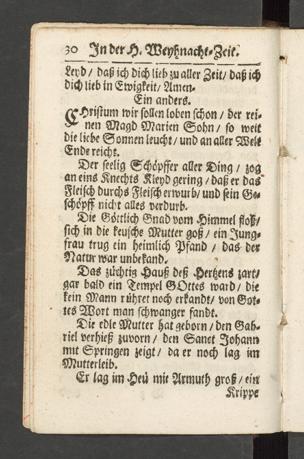 30 In der H. Weyhnacht-Zeit.
Leyd / daß ich dich lieb zu aller Zeit / daß ich
dich lieb in Ewigkeit / Amen.
Ein anders.
CHristum wir sollen loben schon / der rei-
nen Magd Marien Sohn / so weit
die liebe Sonnen leucht / und an aller Welt
Ende reicht.
Der seelig Schöpffer aller Ding / zog
an eins Knechts Kleyd gering / daß er das
Fleisch durchs Fleisch erwurb / und sein Ge-
schöpff nicht alles verdurb.
Die Göttlich Gnad vom Himmel floß /
sich in die keusche Mutter goß / ein Jung-
frau trug ein heimlich Pfand / das der
Natur war unbekand.
Das züchtig Hauß deß Hertzens zart /
gar bald ein Tempel GOttes ward / die
kein Mann rühret noch erkandt / von Got-
tes Wort man schwanger fandt.
Die edle Mutter hat geborn / den Gab-
riel verhieß zuvorn / den Sanct Johann
mit Springen zeigt / da er noch lag im
Mutterleib.
Er lag im Heü mit Armuth groß / ein
Krippe